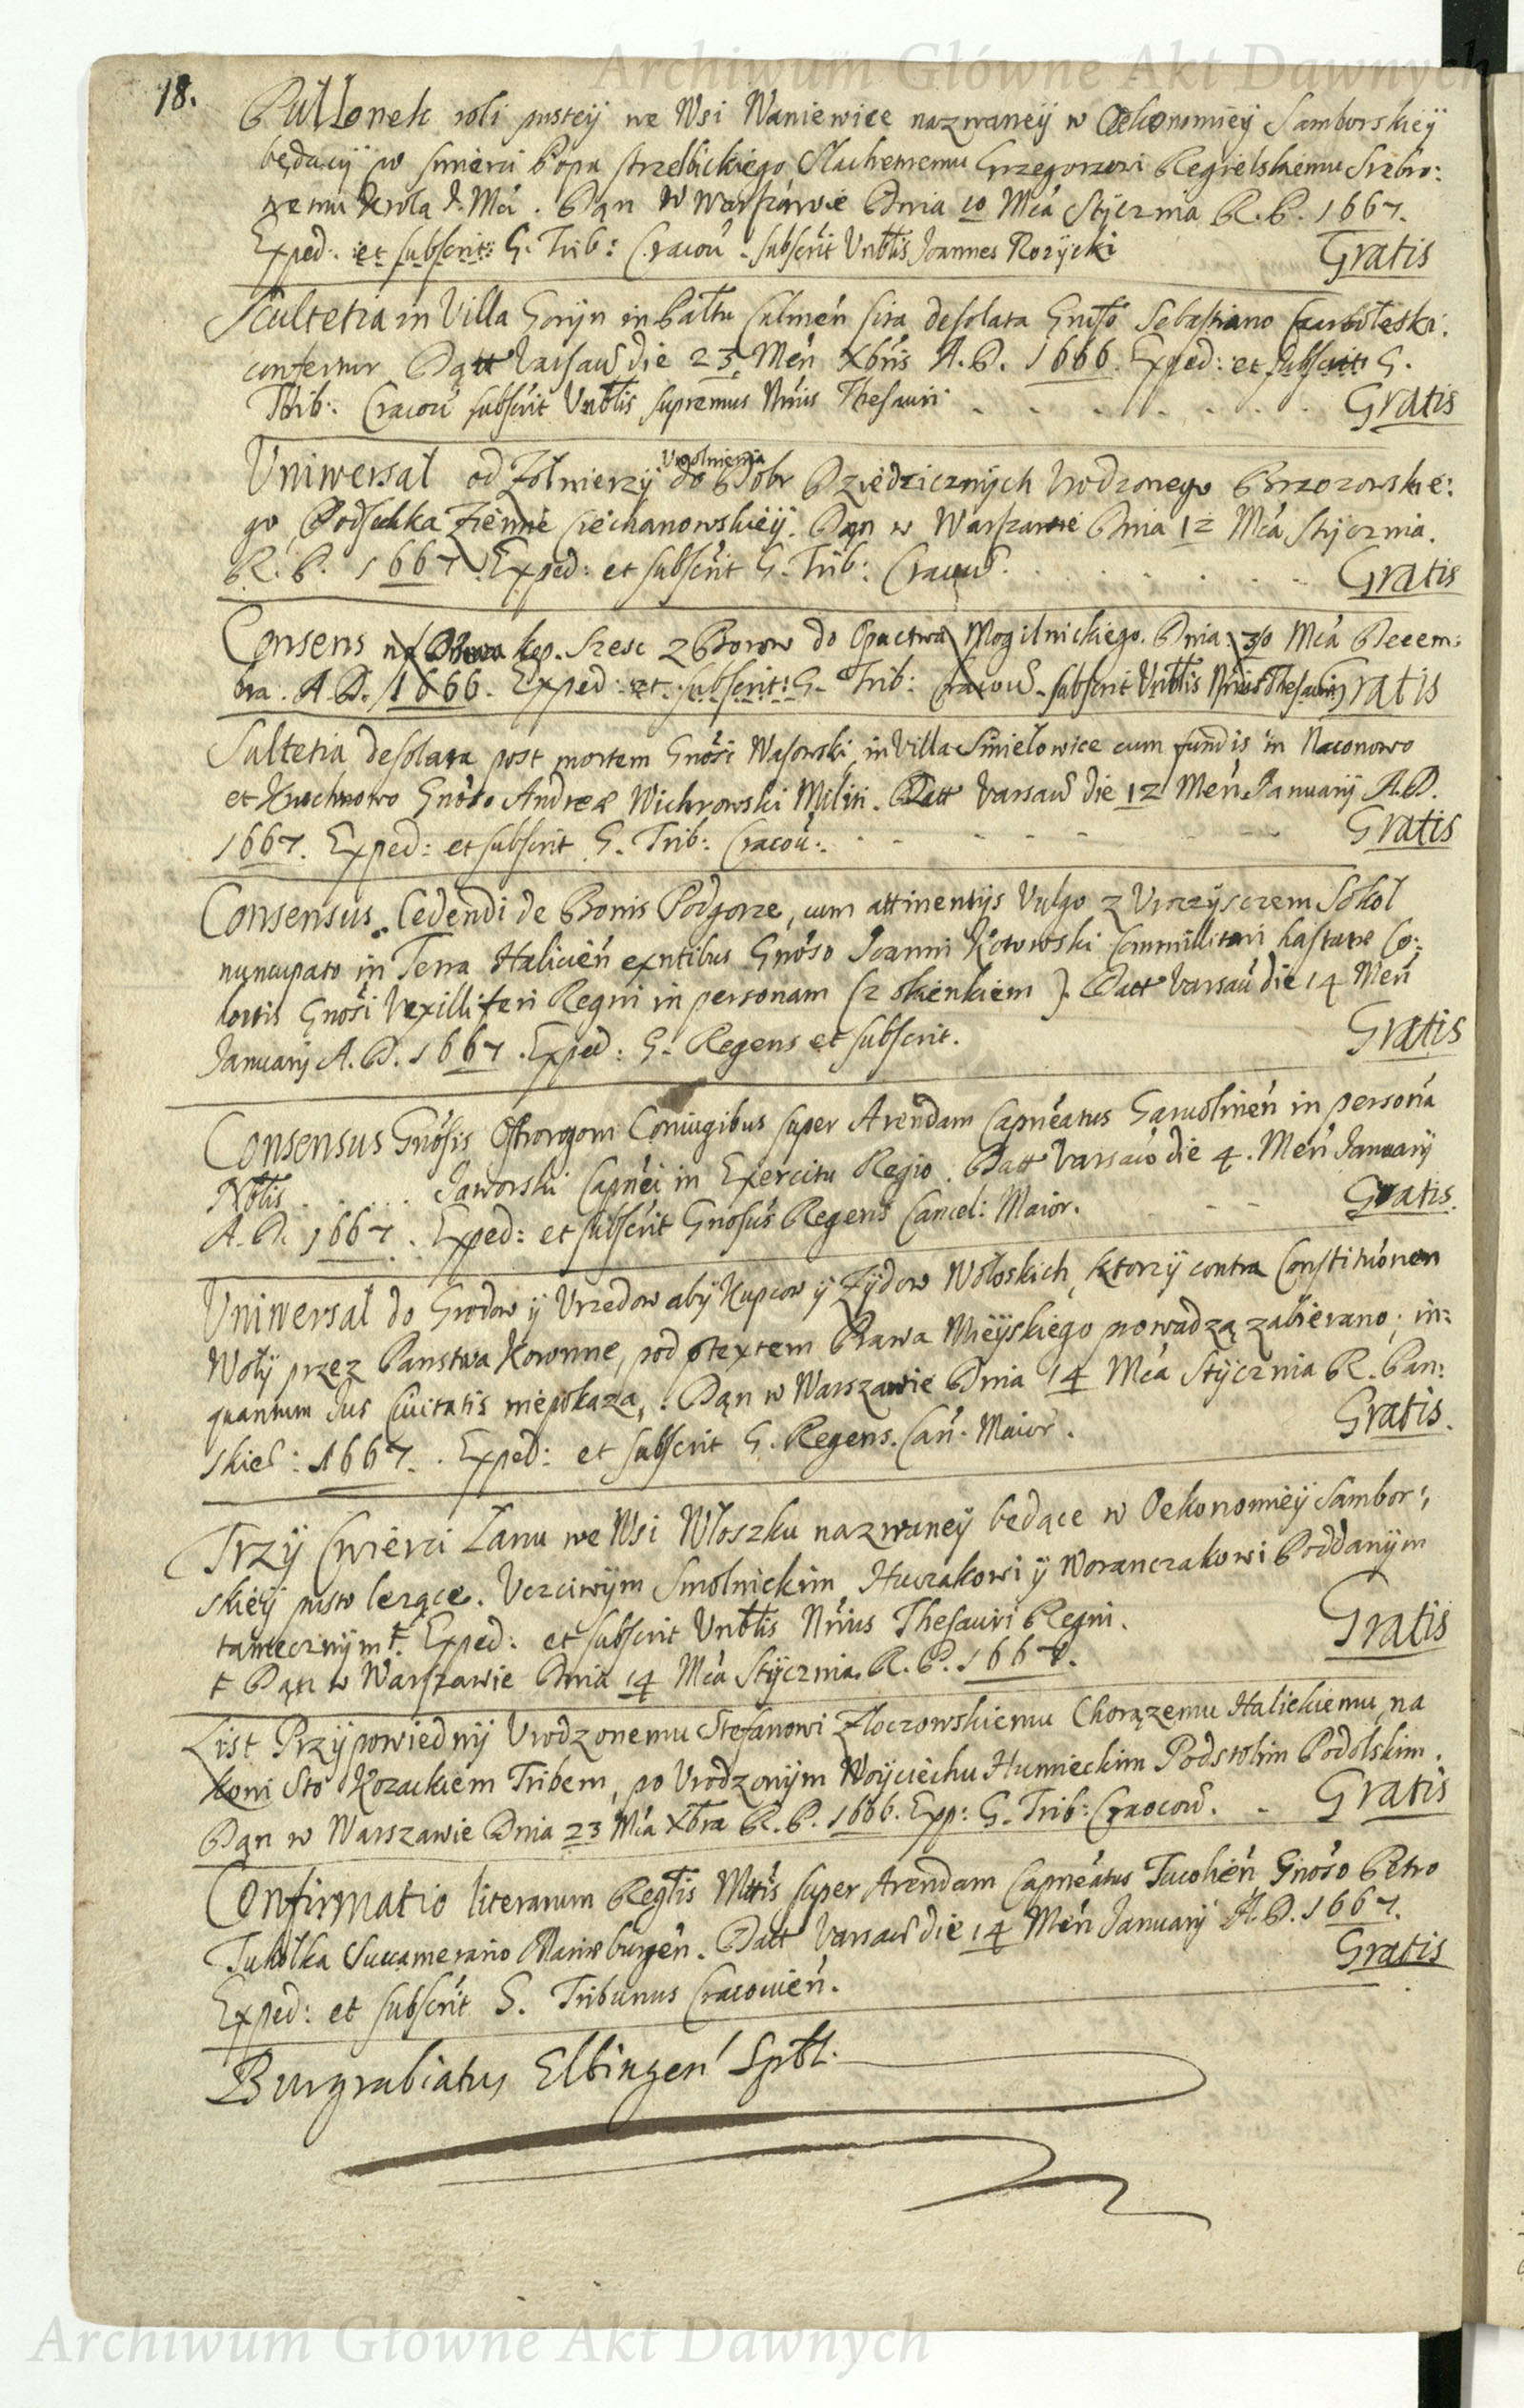 Archiwum Główne Akt Dawnych
18.
Pułłonek roli pustey we Wsi Waniewice nazwaney w Oekonomiey Samborskiey
będący po smierci Popa strzelbickiego Slachetnemu Grzegorzowi Regielskiemu Srebro:
nemu Krola J. Mci. Dan w Warszawie Dnia 10 Mca Stycznia R. P. 1667.
Exped: et subscrit: G. Trib: Cracou. subscrit Vrblis Joannes Rozycki Gratis
Scultetia in Villa Goryn in Palltu Culmen sita desolata Gnoso Sebastiano
confertur Datt Varsaw die 23 Men Xbris A. D. 1666. Exped: et subscrit G.
Trib: Cracou subscrit Vrblis supremus Nrius Thesauri . . . . . . . . Gratis
Vwolnienia
Uniwersał od Zołnierzy do Dobr Dziedzicznych Vrodzonego Brzozowskie:
go Podsedka Ziemie Ciechanowskiey. Dan w Warszawie Dnia 12 Mca Stycznia.
R. P. 1667. Exped: et subscrit G. Trib: Cracou. . . . . . . . Gratis
Consens na kop. Szesc z Borow do Opactwa Mogilnickiego. Dnia 30 Mca Decem:
bra. A. D. 1666. Exped: et subscrit: G. Trib: Cracou. subscrit Vrblis Nrius Thesauri Gratis
Sultetia desolata post mortem Gnosi Wasowski in Villa Smiełowice cum fundis in Naconowo
et Kruchnowo Gnoso Andreæ Wichrowski Militi. Datt Varsau die 12 Men Januarij A. D.
1667. Exped: et subscrit G. Trib: Cracou. Gratis
Consensus Cedendi de Bonis Podgorze, cum attinentijs Vulgo z Vroczyszczem Sokol
nuncupato in Terra Halicien exntibus Gnoso Joanni Kotowski Commilitoni hastatæ Co:
hortis Gnosi Vexilliferi Regni in personam (z okienkiem). Datt Varsau die 14 Men
Januarij A. D. 1667. Exped: G. Regens et subscrit. Gratis
Consensus Gnosis Ostrogom Coniugibus super Arendam Capneatus Garuolinen in persona
Nblis . . . . . Jaworski Capnei in Exercitu Regio. Datt Varsau die 4. Men Januarij
A. D. 1667. Exped: et subscrit Gnosus Regens Cancel: Maior. Gratis.
Uniwersał do Grodow y Vrzedow aby Kupcow y Zydow Wołoskich, ktorzy contra Constitutionem
Woły przez Panstwa Koronne, pod ptextem Prawa Mieyskiego prowadzą zabierano; in:
quantum Jus Ciuitatis niepokaza. Dan w Warszawie Dnia 14 Mca Stycznia R. Pan:
skieg: 1667. Exped: et subscrit G. Regens. Can. Maior. Gratis.
Trzy Cwierci Łanu we Wsi Włoszku nazwaney będące w Oekonomiey Sambor:
skiey pusto lezące. Vczciwym Smolnickim, Huczakowi y Woranczakowi Poddanym
tamecznym. † Exped: et subscrit Vrblis Nrius Thesauri Regni. Gratis
† Dan w Warszawie Dnia 14 Mca Stycznia. R. P. 1667.
List Przypowiedny Vrodzonemu Stefanowi Złoczowskiemu Chorązemu Halickiemu, na
koni Sto Kozackiem Tribem, po Vrodzonym Woyciechu Humieckim Podstolim Podolskim.
Dan w Warszawie Dnia 23 Mca Xbra R. P. 1666. Exp: G. Trib: Cracow. Gratis
Confirmatio literarum Reglis Mttis super Arendam Capneatus Tucholien Gnoso Petro
Tuholka Succamerario Mariæburgen. Datt Varsau die 14 Men Januarij A. D. 1667.
Exped: et subscrit G. Tribunus Cracouien. Gratis
Burgrabiatus Elbingen Sptl.
Archiwum Główne Akt Dawnych